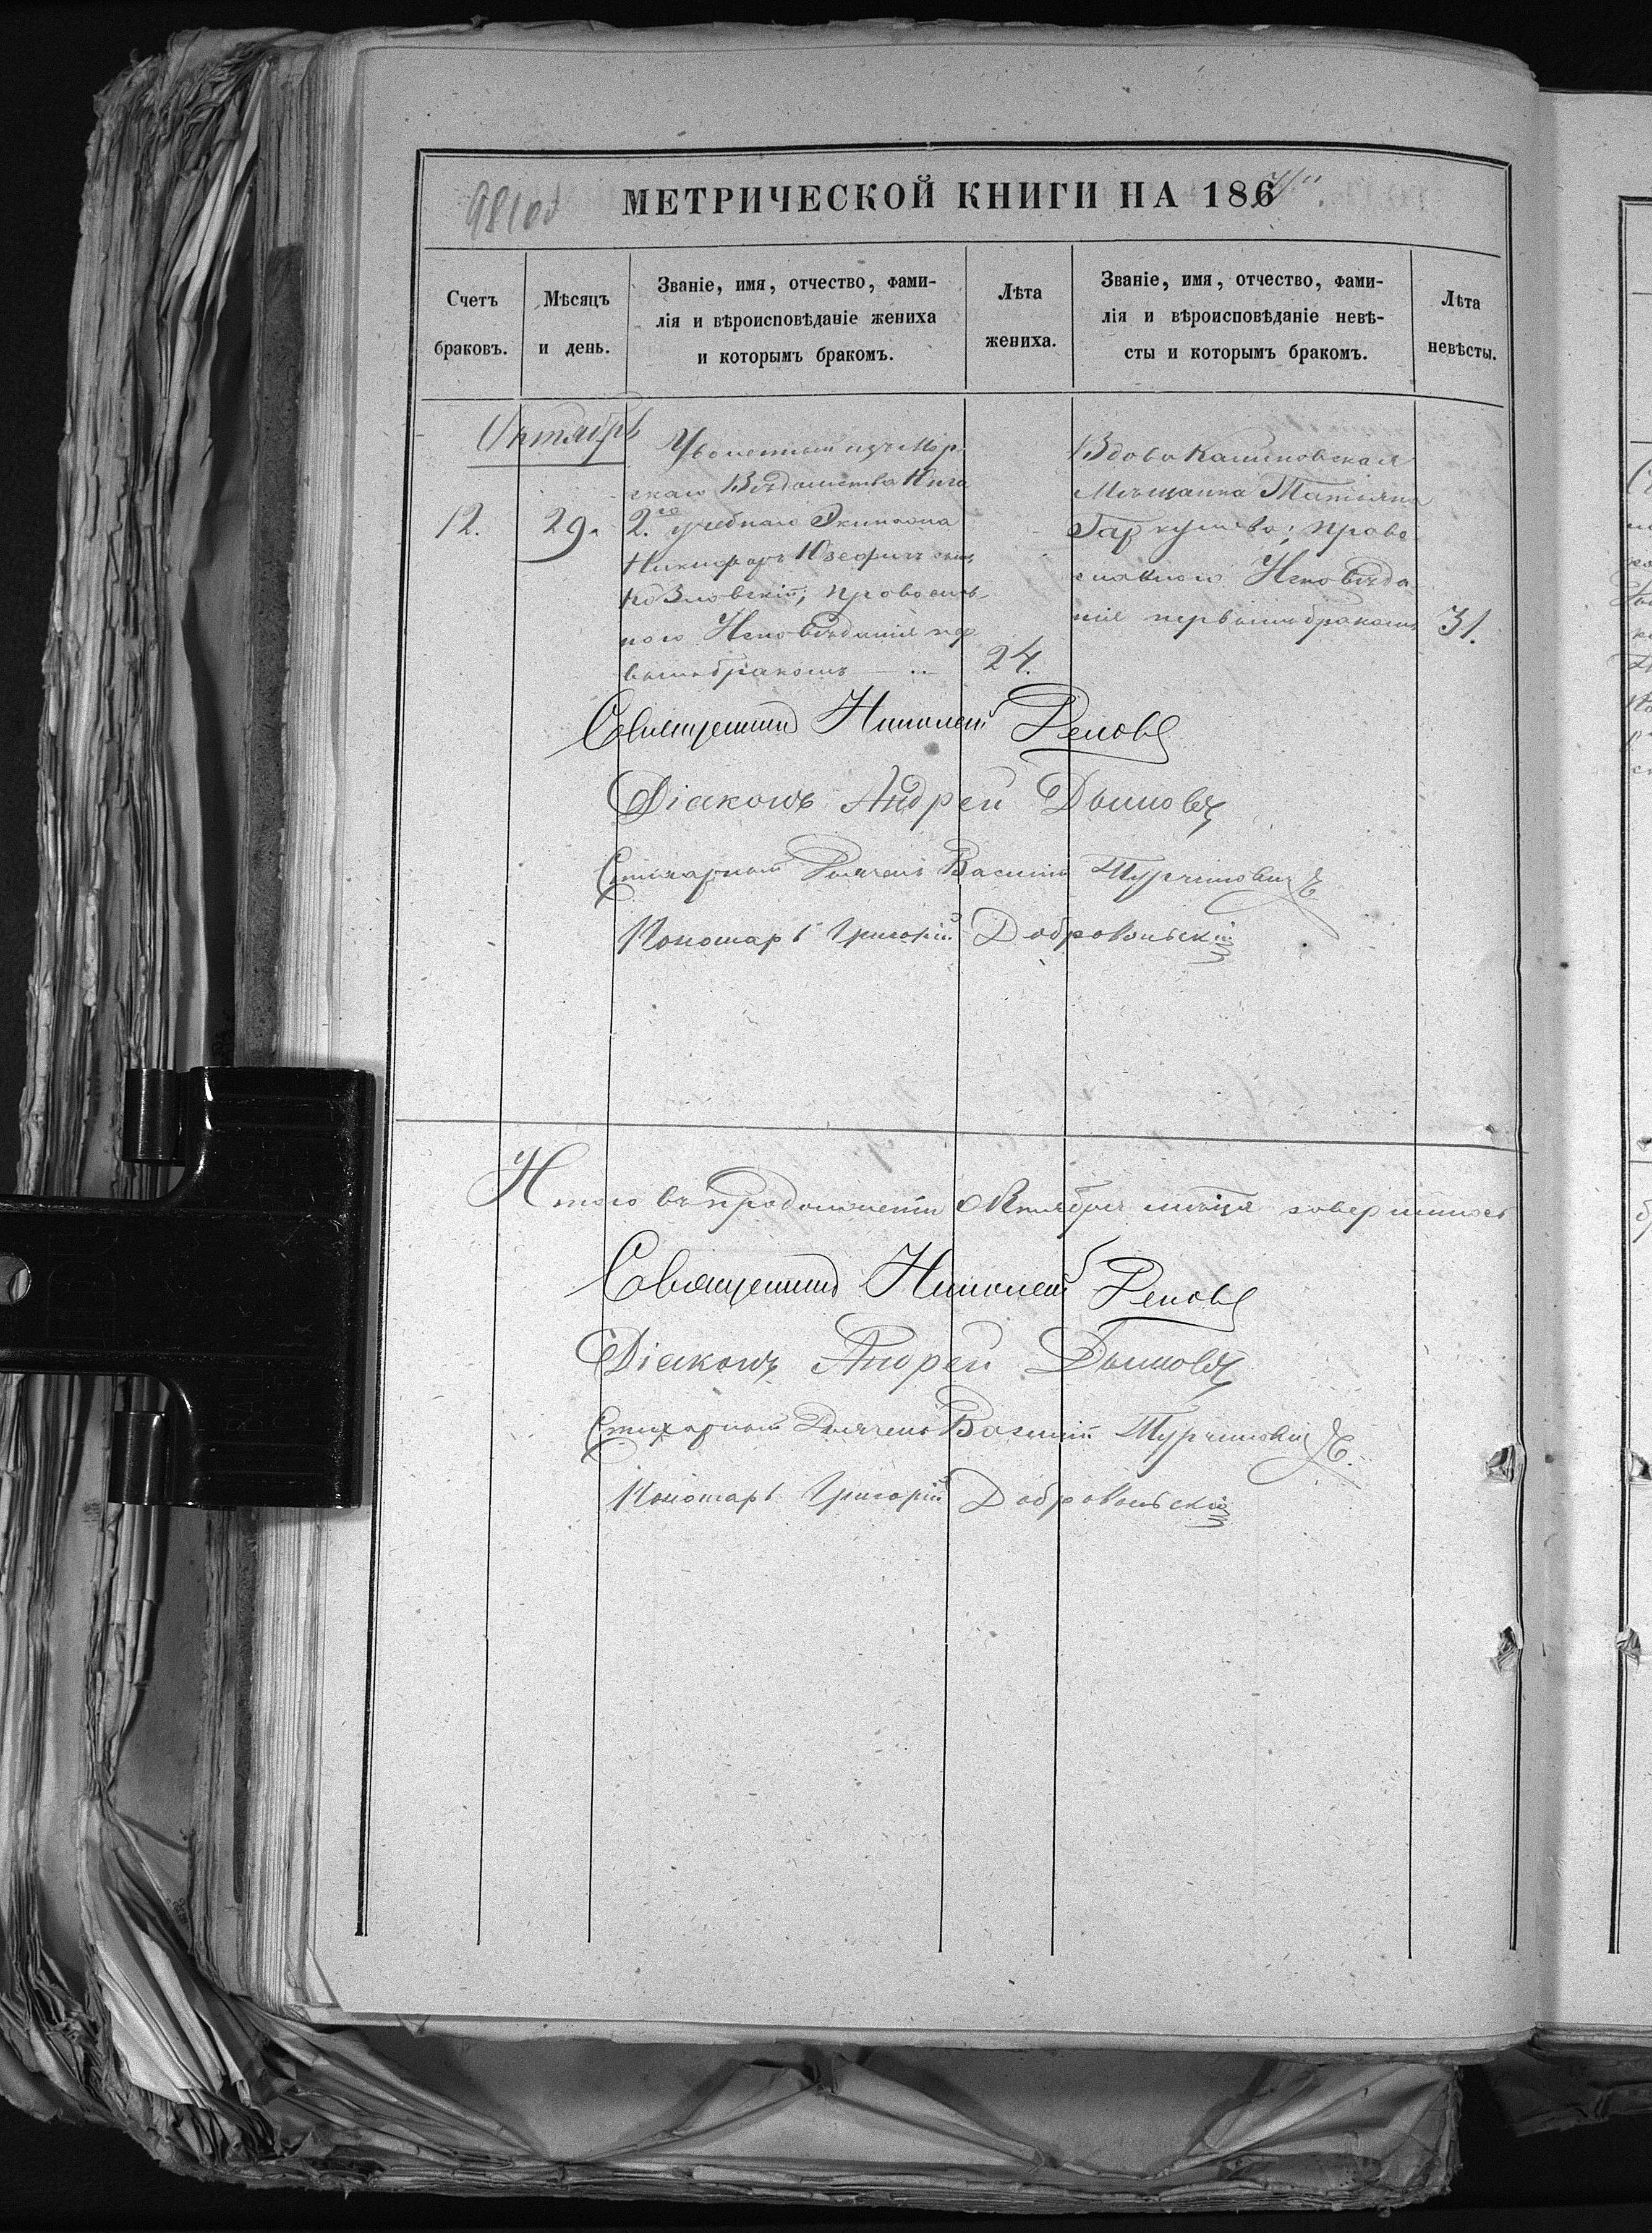 МЕТРИЧЕСКОЙ КНИГИ НА 186
Счетъ браковъ.
Мѣсяцъ и день.
Званіе, имя, отчество, фами-
лія и вѣроисповѣданіе жениха
и которымъ бракомъ.
Лѣта жениха.
Званіе, имя, отчество, фами-
лія и вѣроисповѣданіе невѣ-
сты и которымъ бракомъ.
Лѣта невѣсты.
Октябрь
12.
29.
Уволенный изъ Мор
скаго Вѣдомства Юнга
2го учебнаго Экипажа
Козловскій; православ
наго Исповѣданія пер
вымъ бракомъ
24.
Вдова Калиновская
Мѣщанка Татьяна
право
славнаго Исповѣда
нія первымъ бракомъ
31.
Священникъ Николай
Діаконъ Андрей Дымовъ
Стихарный Дьячекъ Василій Турчиновичъ
Пономарь Григорій Добровольскій
Итого въ продолженіи Октября мѣсяца совершилось
Священникъ Николай
Діаконъ Андрей Дымовъ
Стихарный Дьячекъ Василій Турчиновичъ
Пономарь Григорій Добровольскій